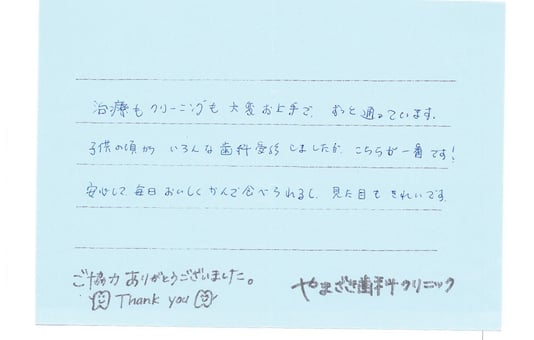 治療も クリーニングも 大変お上手で、ずっと通っています。
子供の頃から いろんな歯科受診しましたが、こちらが一番です！
安心して毎日おいしくかんで食べられるし、見た目もきれいです。
ご協力ありがとうございました。
Thank you
やまざき歯科クリニック